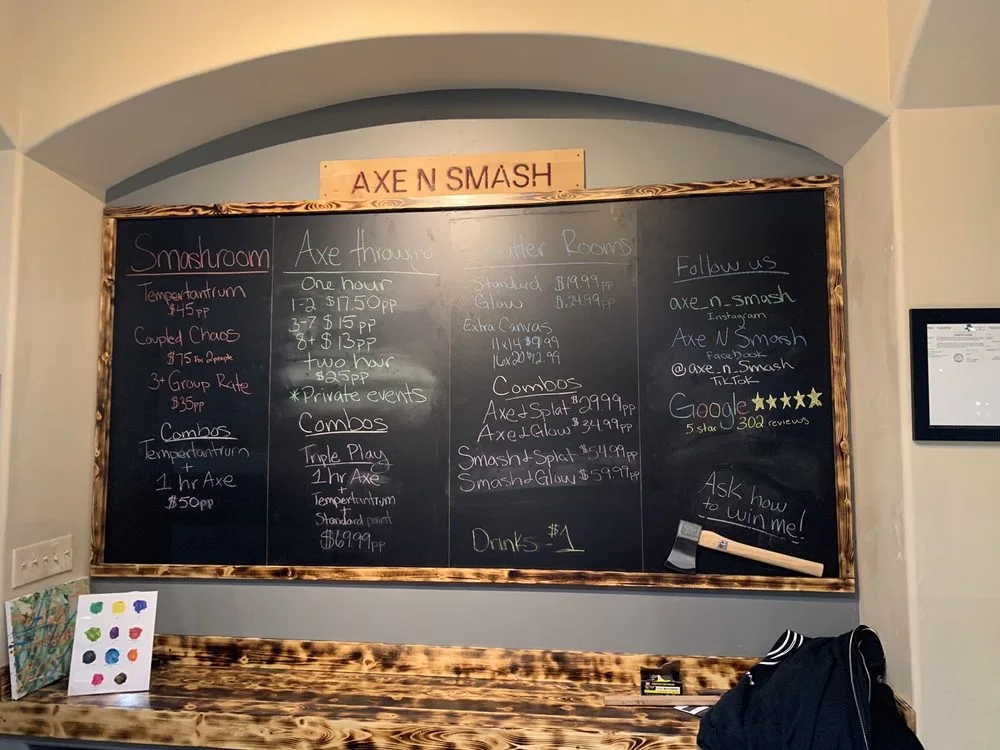 AXE N SMASH
Smashroom
Tempertantrum
$45pp
Coupled Chaos
$75 For 2 people
3+ Group Rate
$35pp
Combos
Tempertantrum
+
1 hr Axe
$50pp
Axe throwing
One hour
1-2 $17.50pp
3-7 $15pp
8+ $13pp
two hour
$25pp
*Private events
Combos
Triple Play
1 hr Axe
+
Tempertantrum
+
Standard paint
$69.99pp
Rooms
Standard $19.99pp
Glow $24.99pp
Extra Canvas
11x14 $9.99
16x20 $12.99
Combos
Axe & Splat $29.99pp
Axe & Glow $34.99pp
Smash & Splat $54.99pp
Smash & Glow $59.99pp
Drinks - $1
Follow us
axe_n_smash
Instagram
Axe N Smash
Facebook
@axe_n_Smash
TikTok
Google
5 star 302 reviews
Ask how
to win me!